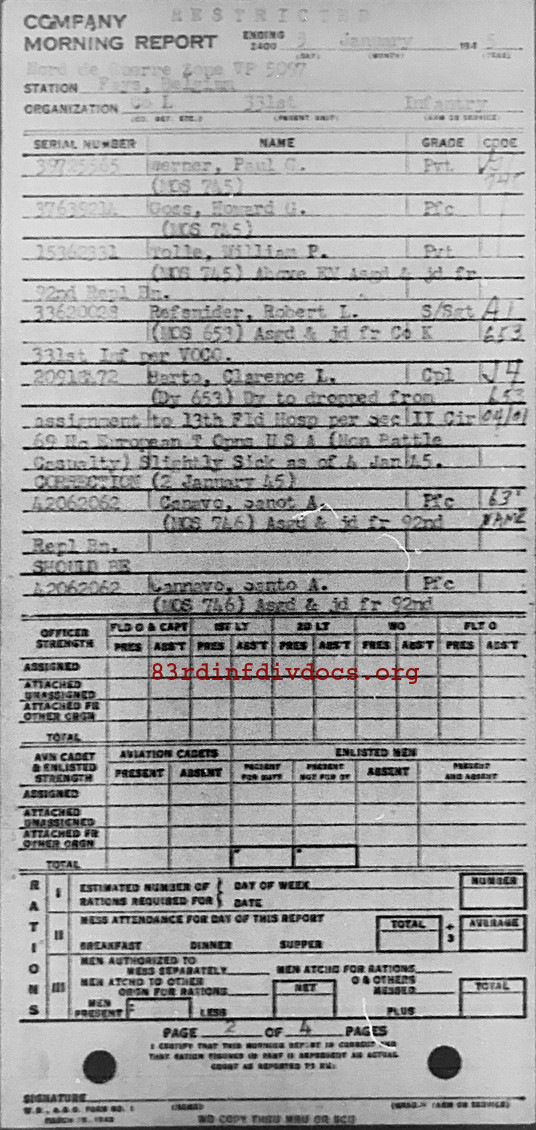 RESTRICTED
COMPANY
MORNING REPORT ENDING 2400 3 January 194 5
(DAY) (MONTH) (YEAR)
Nord de Guerre Zone VP 5097
STATION Fays, Belgium
ORGANIZATION Co L 331st Infantry
(CO. DET. ETC.) (PARENT UNIT) (ARM OR SERVICE)
SERIAL NUMBER NAME GRADE CODE
39725565 Berner, Paul G. Pvt
(MOS 745) 745
37639214 Goss, Howard G. Pfc
(MOS 745)
15362331 Tolle, William P. Pvt
(MOS 745) Above EM Asgd & jd fr
92nd Repl Bn.
33620028 Refsnider, Robert L. S/Sgt A1
(MOS 653) Asgd & jd fr Co K 653
331st Inf per VOCG.
20918472 Harto, Clarence L. Cpl J4
(Dy 653) Dy to dropped from 653
assignment to 13th Fld Hosp per sec II Cir 04/01
69 Hq European T Opns U S A (Non Battle
Casualty) Slightly Sick as of 4 Jan 45.
CORRECTION (2 January 45)
42062062 Canavo, Sanot A. Pfc 63
(MOS 746) Asgd & jd fr 92nd NAME
Repl Bn.
SHOULD BE
42062062 Cannavo, Santo A. Pfc
(MOS 746) Asgd & jd fr 92nd
OFFICER STRENGTH FLD O & CAPT 1ST LT 2D LT WO FLT O
PRES ABS'T PRES ABS'T PRES ABS'T PRES ABS'T PRES ABS'T
ASSIGNED
83rdinfdivdocs.org
ATTACHED UNASSIGNED
ATTACHED FR OTHER ORGN
TOTAL
AVN CADET & ENLISTED STRENGTH AVIATION CADETS ENLISTED MEN
PRESENT ABSENT PRESENT FOR DUTY PRESENT NOT FOR DY ABSENT PRESENT AND ABSENT
ASSIGNED
ATTACHED UNASSIGNED
ATTACHED FR OTHER ORGN
TOTAL
RATIONS
I ESTIMATED NUMBER OF RATIONS REQUIRED FOR { DAY OF WEEK NUMBER
DATE
II MESS ATTENDANCE FOR DAY OF THIS REPORT TOTAL ÷ 3 AVERAGE
BREAKFAST DINNER SUPPER
III MEN AUTHORIZED TO MESS SEPARATELY MEN ATCHD FOR RATIONS
MEN ATCHD TO OTHER ORGN FOR RATIONS NET O & OTHERS MESSED TOTAL
MEN PRESENT LESS PLUS
PAGE 2 OF 4 PAGES
I CERTIFY THAT THIS MORNING REPORT IS CORRECT AND
THAT RATION FIGURES IN PART III DEPENDENT AN ACTUAL
COUNT AS REPORTED TO ME:
SIGNATURE
W.D., A.G.O. FORM NO. 1 (NAME) (GRADE) (ARM OR SERVICE)
MARCH 15, 1943 NO COPY THRU MRU OR SCU